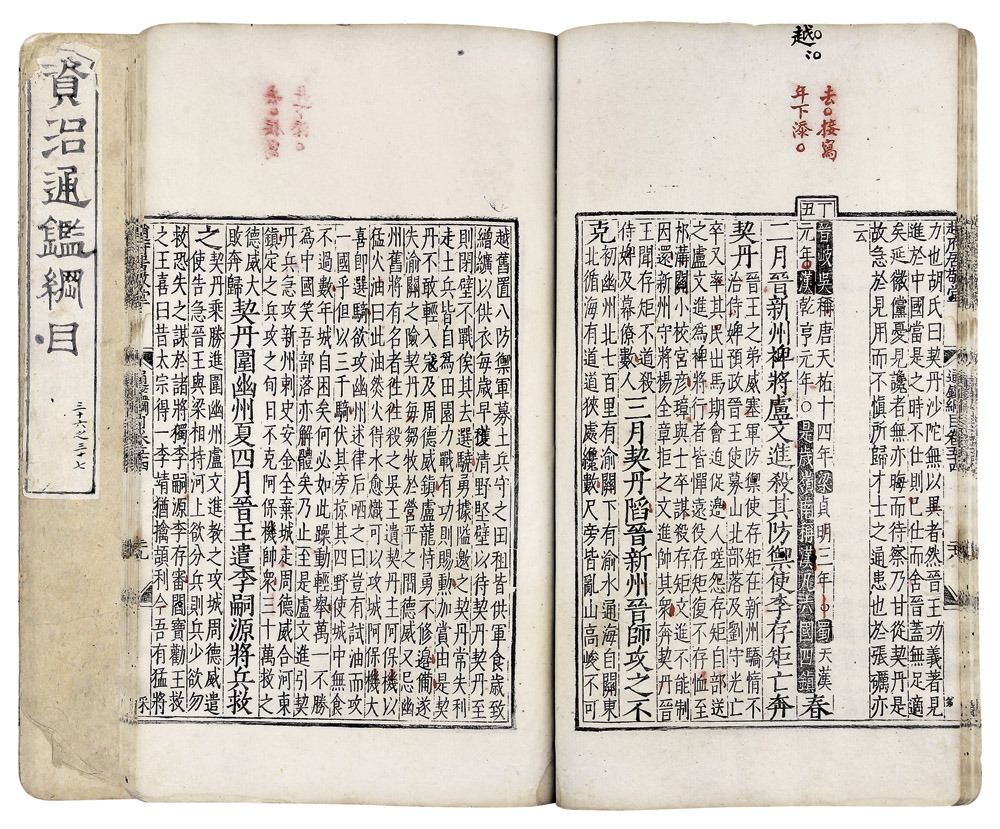 資治通鑑綱目
三十六之三十七
越
去。接寫
年下添。
力也胡氏曰契丹沙陀無以異者然晉王功義著見
進於中國當是之時不仕則已仕而舍晉蓋無足適
矣延徽儻憂見讒者無亦晦而待察乃甘從契丹是
故急於見用而不慎所歸才士之通患也於張礪亦
云
丁丑
晉岐吳稱唐天祐十四年梁貞明三年。蜀天漢
元年。漢乾亨元年。是歲嶺南稱漢凡六國四鎮
春
二月晉新州裨將盧文進殺其防禦使李存矩亡奔
契丹
晉王之弟威塞軍防禦使存矩在新州驕惰不
治侍婢預政晉王使募山北部落及劉守光亡
卒又率其民出馬期會迫促邊人嗟怨存矩自部送
之盧文進為裨將行者皆憚遠役存矩復不存恤至
祁溝關小校宮彥璋與士卒謀殺存矩文進不能制
因還新州守將楊全章拒之
三月契丹陷晉新州晉師攻之不
克
初幽州北七百里有渝關下有渝水通海自關東
北循海有道道狹處纔數尺旁皆亂山高峻不可
越舊置八防禦軍募土兵守之田租皆供軍食歲致
繒纊以供衣每歲早穫清野堅壁以待契丹契丹至
則閉壁不戰俟其去選驍勇據隘邀之契丹常失利
走土兵皆自為田園力戰有功則賜勳加賞由是契
丹不敢輕入寇及周德威鎮盧龍恃勇不修邊備遂
失渝關之險契丹每芻牧於營平之間德威又忌幽
州舊將有名者往往殺之吳王遺契丹主阿保機以
猛火油曰此油然火得水愈熾可以攻城阿保機大
喜即選騎欲攻幽州述律后哂之曰豈有試油而攻
一國乎但以三千騎伏其旁掠其四野使城中無食
不過數年城自困矣何必如此躁動輕舉萬一不勝
為中國笑吾部落亦解體矣乃止至是盧文進引契
丹兵急攻新州刺史安金全棄城走周德威合河東
鎮定之兵攻之旬日不克阿保機帥衆三十萬救之
德威大
敗奔歸
契丹圍幽州夏四月晉王遣李嗣源將兵救
之
契丹乘勝進圍幽州盧文進教之攻城周德威遣
使告急晉王與梁相持河上欲分兵則兵少欲勿
救恐失之謀於諸將獨李嗣源李存審閻寶勸王救
之王喜曰昔太宗得一李靖猶擒頡利今吾有猛將